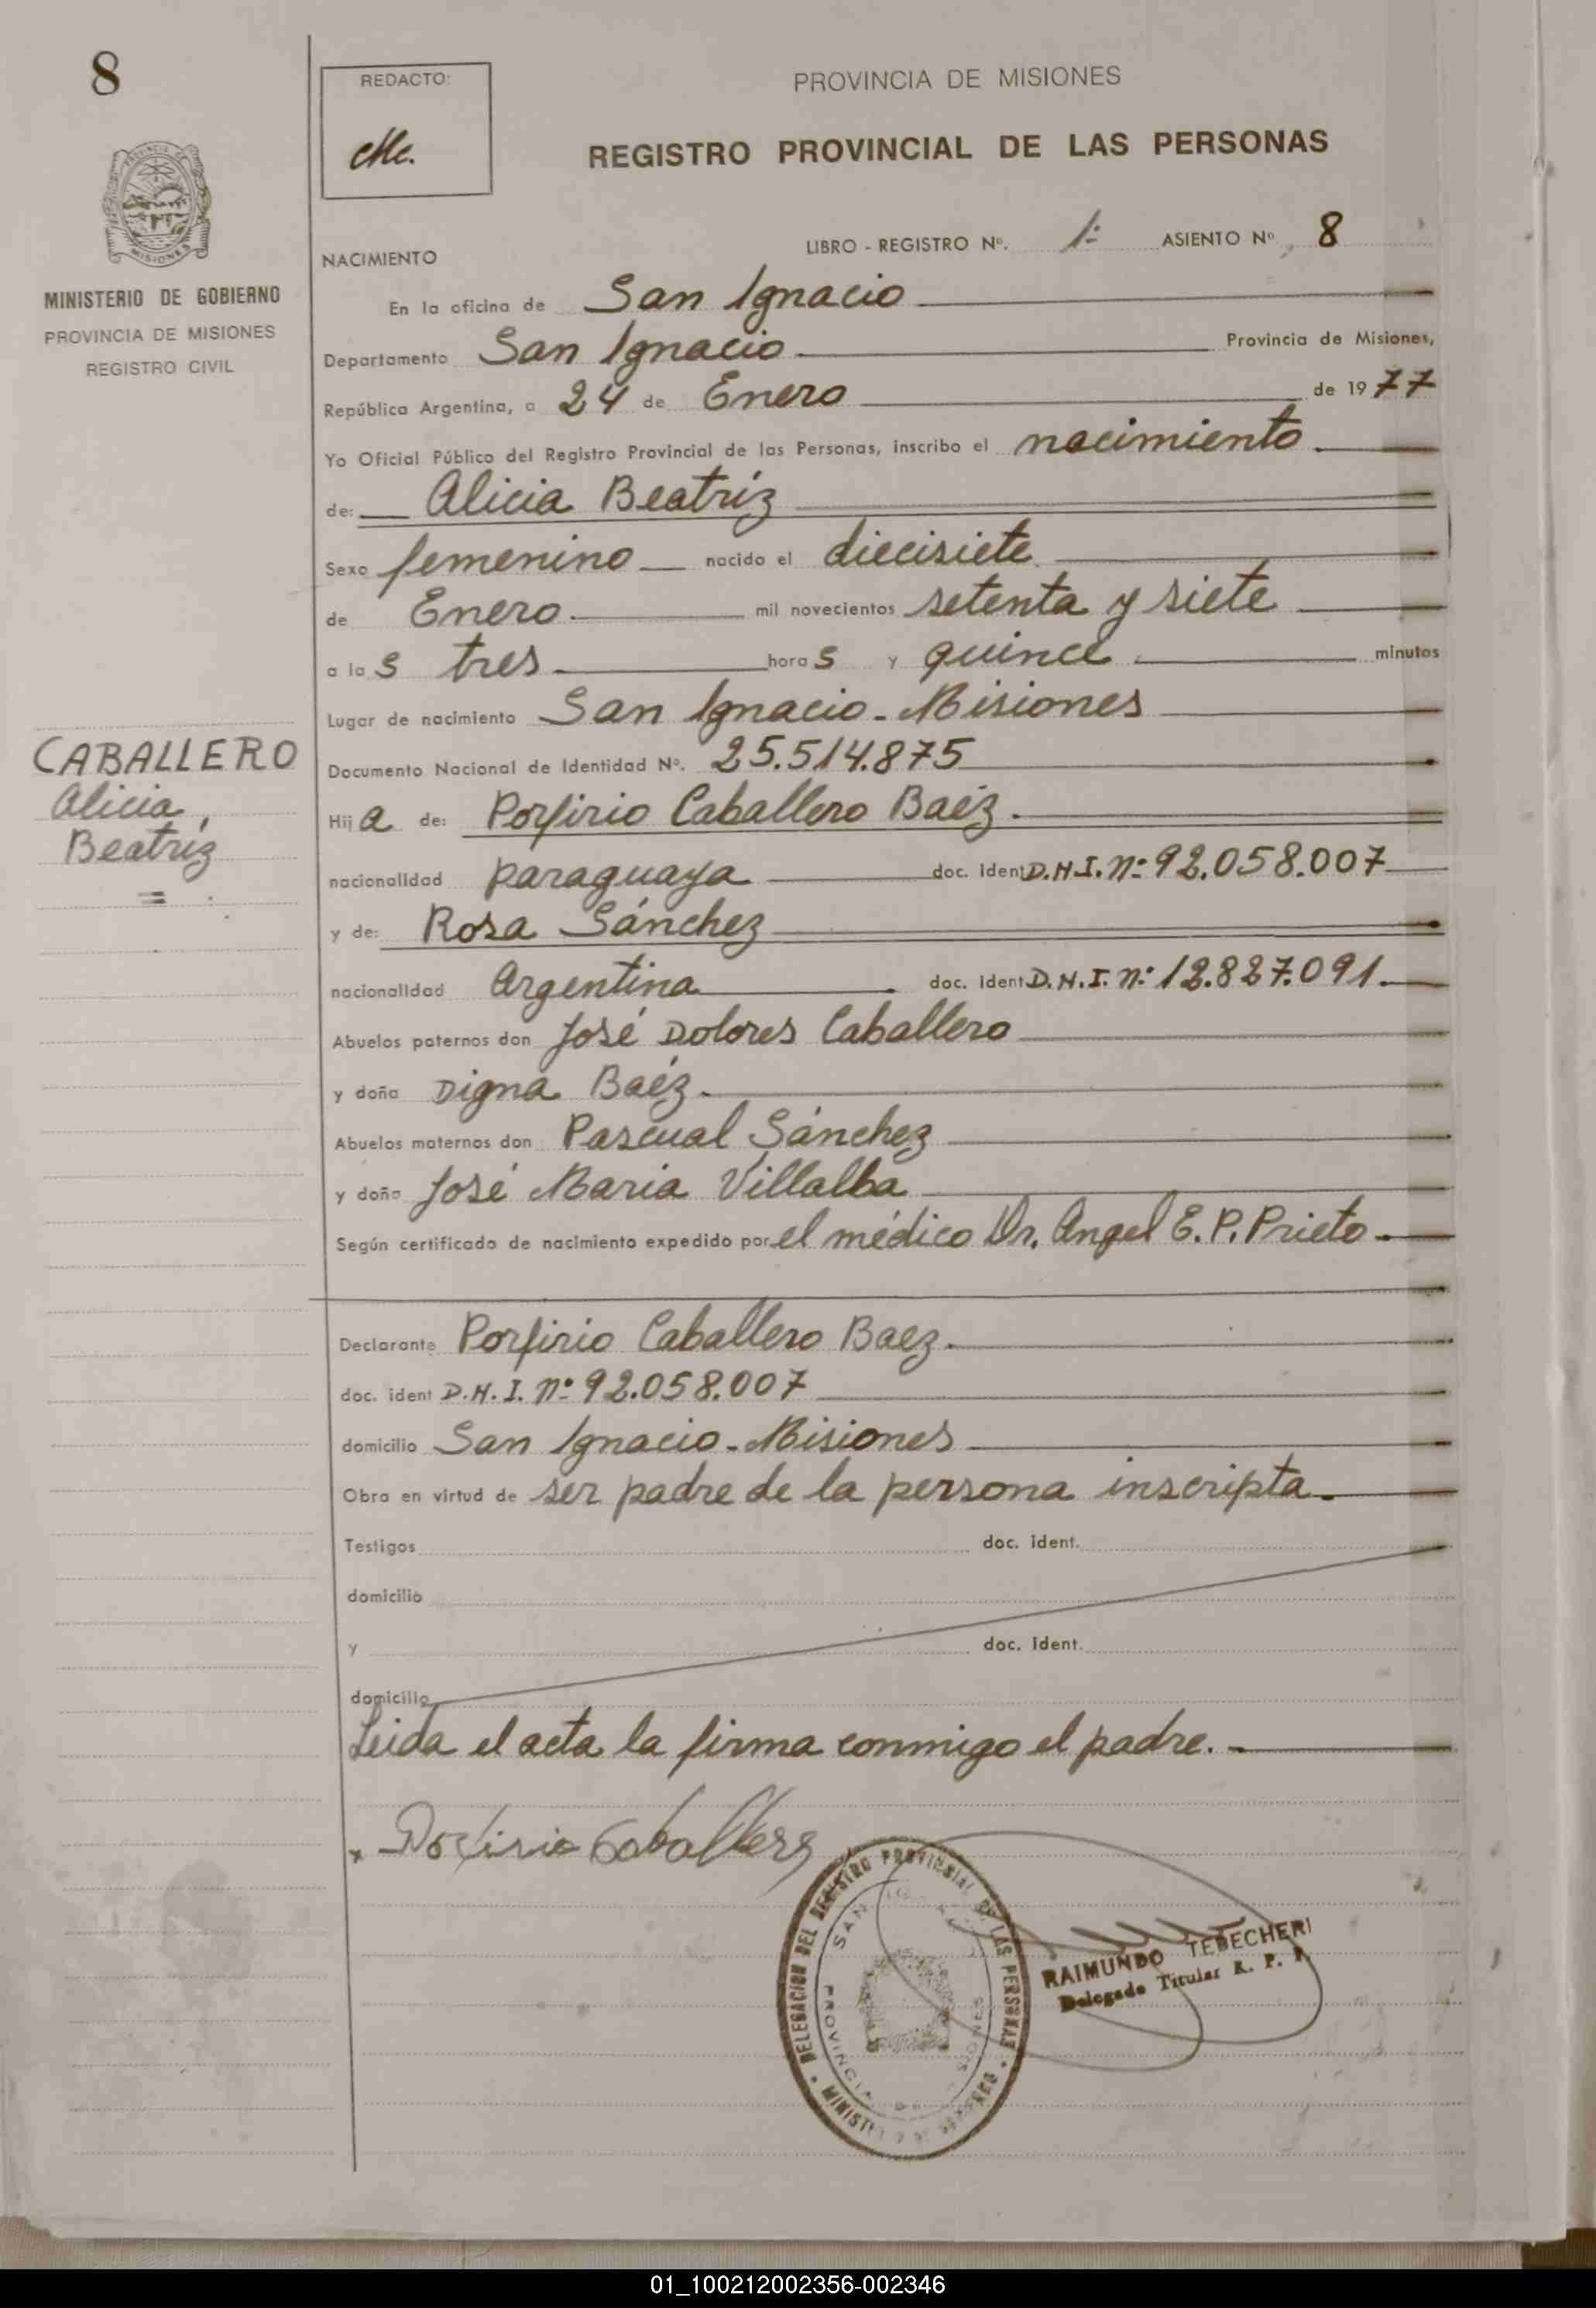 8
REDACTO:
PROVINCIA DE MISIONES
REGISTRO PROVINCIAL DE LAS PERSONAS
LIBRO - REGISTRO Nº. 1º ASIENTO Nº 8
NACIMIENTO
PROVINCIA DE
MISIONES
MINISTERIO DE GOBIERNO
PROVINCIA DE MISIONES
REGISTRO CIVIL
En la oficina de San Ignacio
Departamento San Ignacio Provincia de Misiones,
República Argentina, a 24 de Enero de 1977
Yo Oficial Público del Registro Provincial de las Personas, inscribo el nacimiento
de: Alicia Beatríz
Sexo femenino nacido el diecisiete
de Enero mil novecientos setenta y siete
a las tres horas y quince minutos
Lugar de nacimiento San Ignacio - Misiones
Documento Nacional de Identidad Nº. 25.514.875
CABALLERO
Alicia,
Beatríz
=
Hija de: Porfirio Caballero Baéz.
nacionalidad paraguaya doc. ident D.N.I. nº 92.058.007
y de: Rosa Sánchez
nacionalidad Argentina doc. ident D.N.I. nº 12.827.091.
Abuelos paternos don José Dolores Caballero
y doña Digna Baéz.
Abuelos maternos don Pascual Sánchez
y doña José María Villalba
Según certificado de nacimiento expedido por el médico Dr. Angel E. P. Prieto.
Declarante Porfirio Caballero Baez.
doc. ident D.N.I. nº 92.058.007
domicilio San Ignacio - Misiones
Obra en virtud de ser padre de la persona inscripta.
Testigos doc. ident.
domicilio
y doc. ident.
domicilio
Leida el acta la firma conmigo el padre. -
x Porfirio Caballero
DELEGACION DEL REGISTRO PROVINCIAL DE LAS PERSONAS
SAN
PROVINCIA
RAIMUNDO TEBECHERI
Delegado Titular R. P. P.
01_100212002356-002346